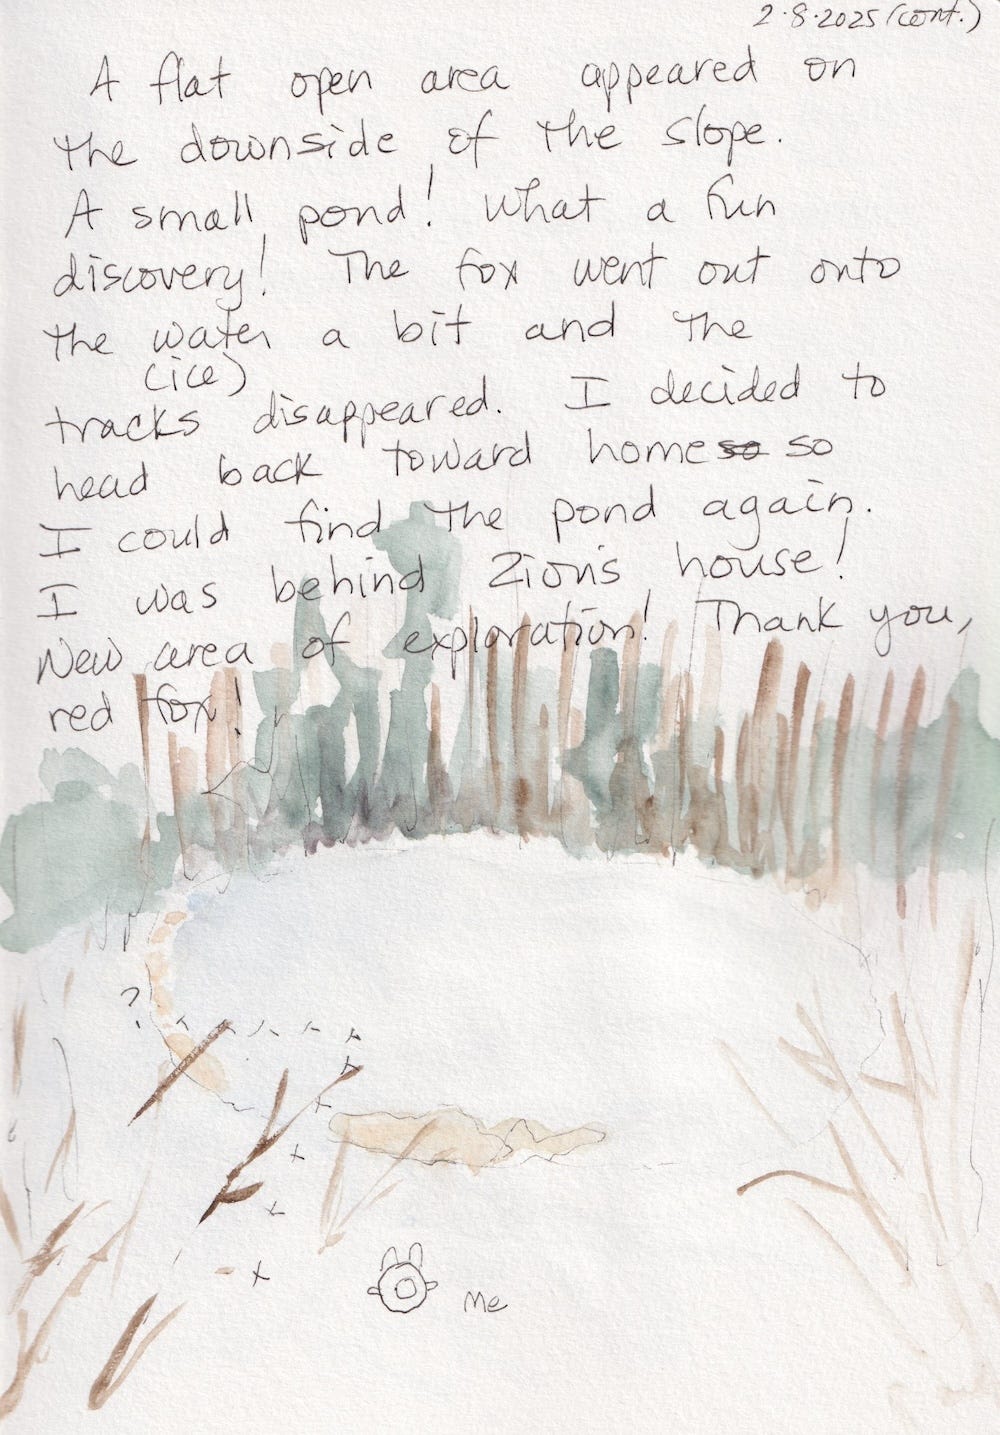 2·8·2025 (cont.)
A flat open area appeared on
the downside of the slope.
A small pond! What a fun
discovery! The fox went out onto
the water a bit and the
(ice)
tracks disappeared. I decided to
head back toward home so so
I could find the pond again.
I was behind Zion's house!
New area of exploration! Thank you,
red fox!
?
Me